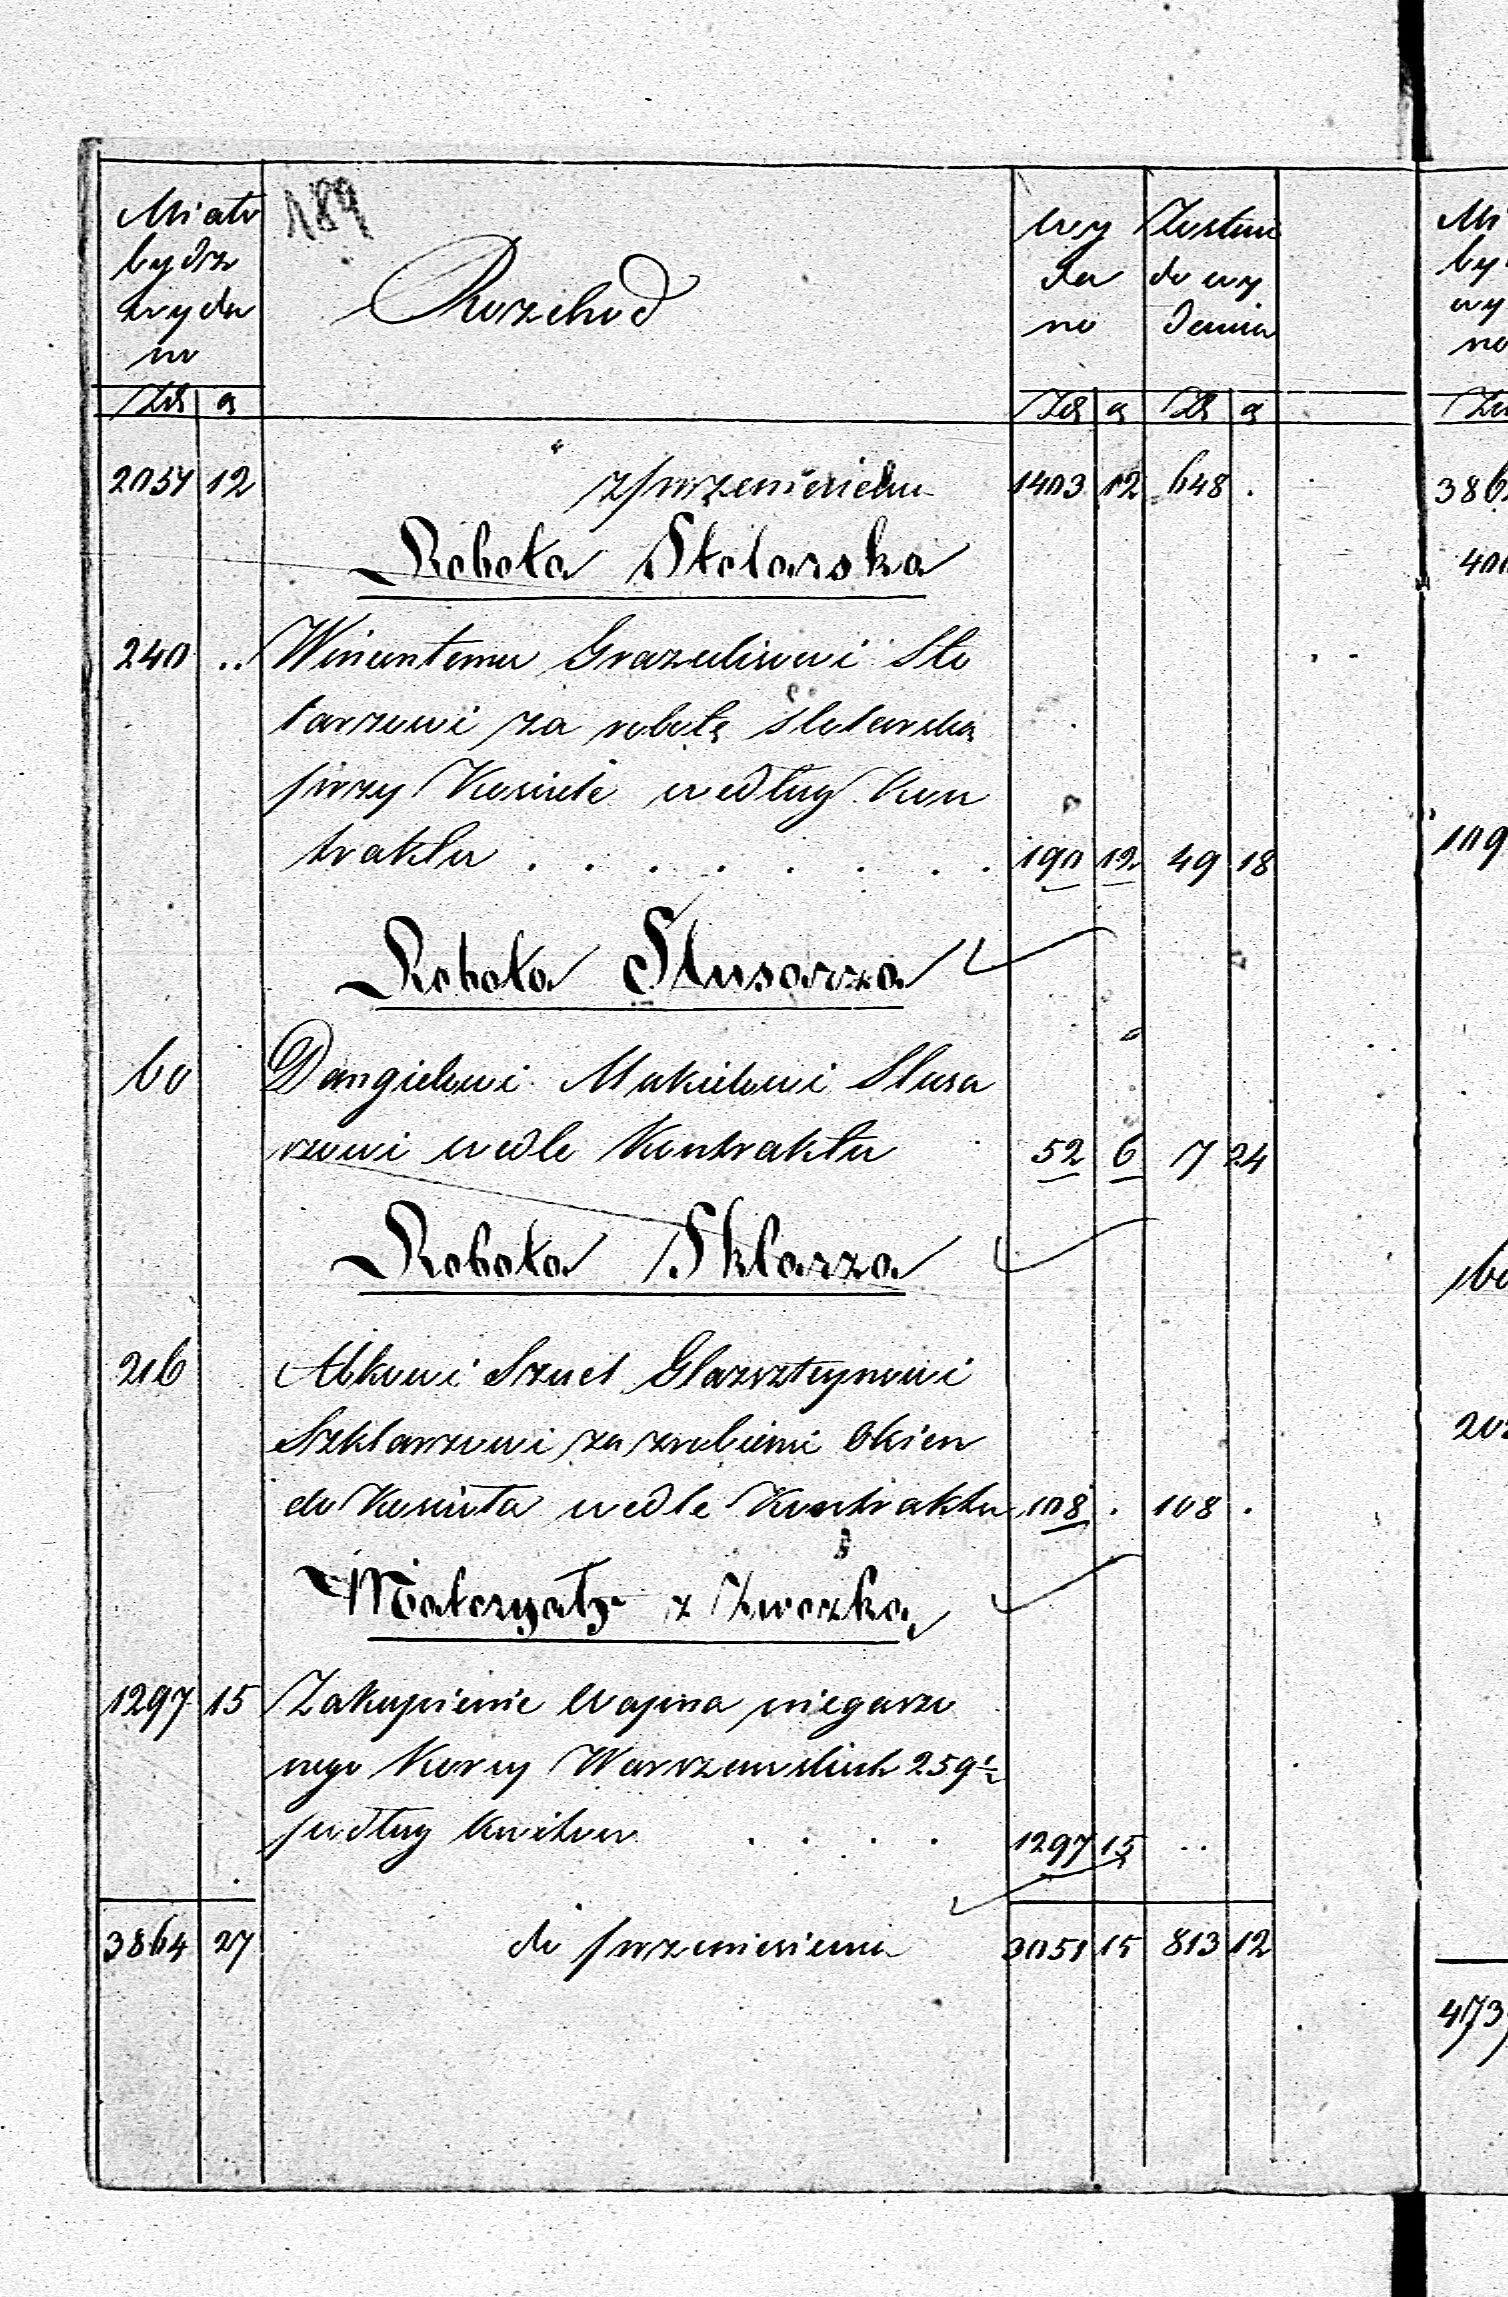 189
Miało
bydź
wyda
no
Rozchod
wy
da
no
Zostaie
do wy
dania
Zł g
Zł g Zł g
2051 12 z przeniesienia 1403 12 648 .
Robota Stolarska
240 .. Wincentemu Grazulisowi Sto
larzowi za robotę stolarską
przy Kosciele według Kon
traktu . . . . . . . . 190 12 49 18
Robota Slusarza
60 Dangielowi Slusa
rzowi wedle Kontraktu 52 6 7 24
Robota Sklarza
216 Abkowi Glazszteynowi
Szklarzowi za zrobienie Okien
do Kosciola wedle Kontraktu 108 . 108 .
Materyały z Zwozką
1297 15 Zakupienie Wapna niegaszo
nego Korcy Warszawskich 259½
podług kwitow . . . . 1297 15 ..
3864 27 do przeniesienia 3051 15 813 12